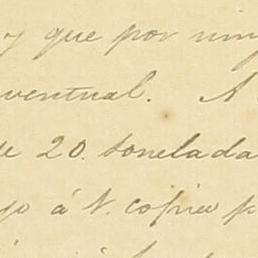 y que por nin
ventual. A
e 20. tonelada
jo á V. copia p